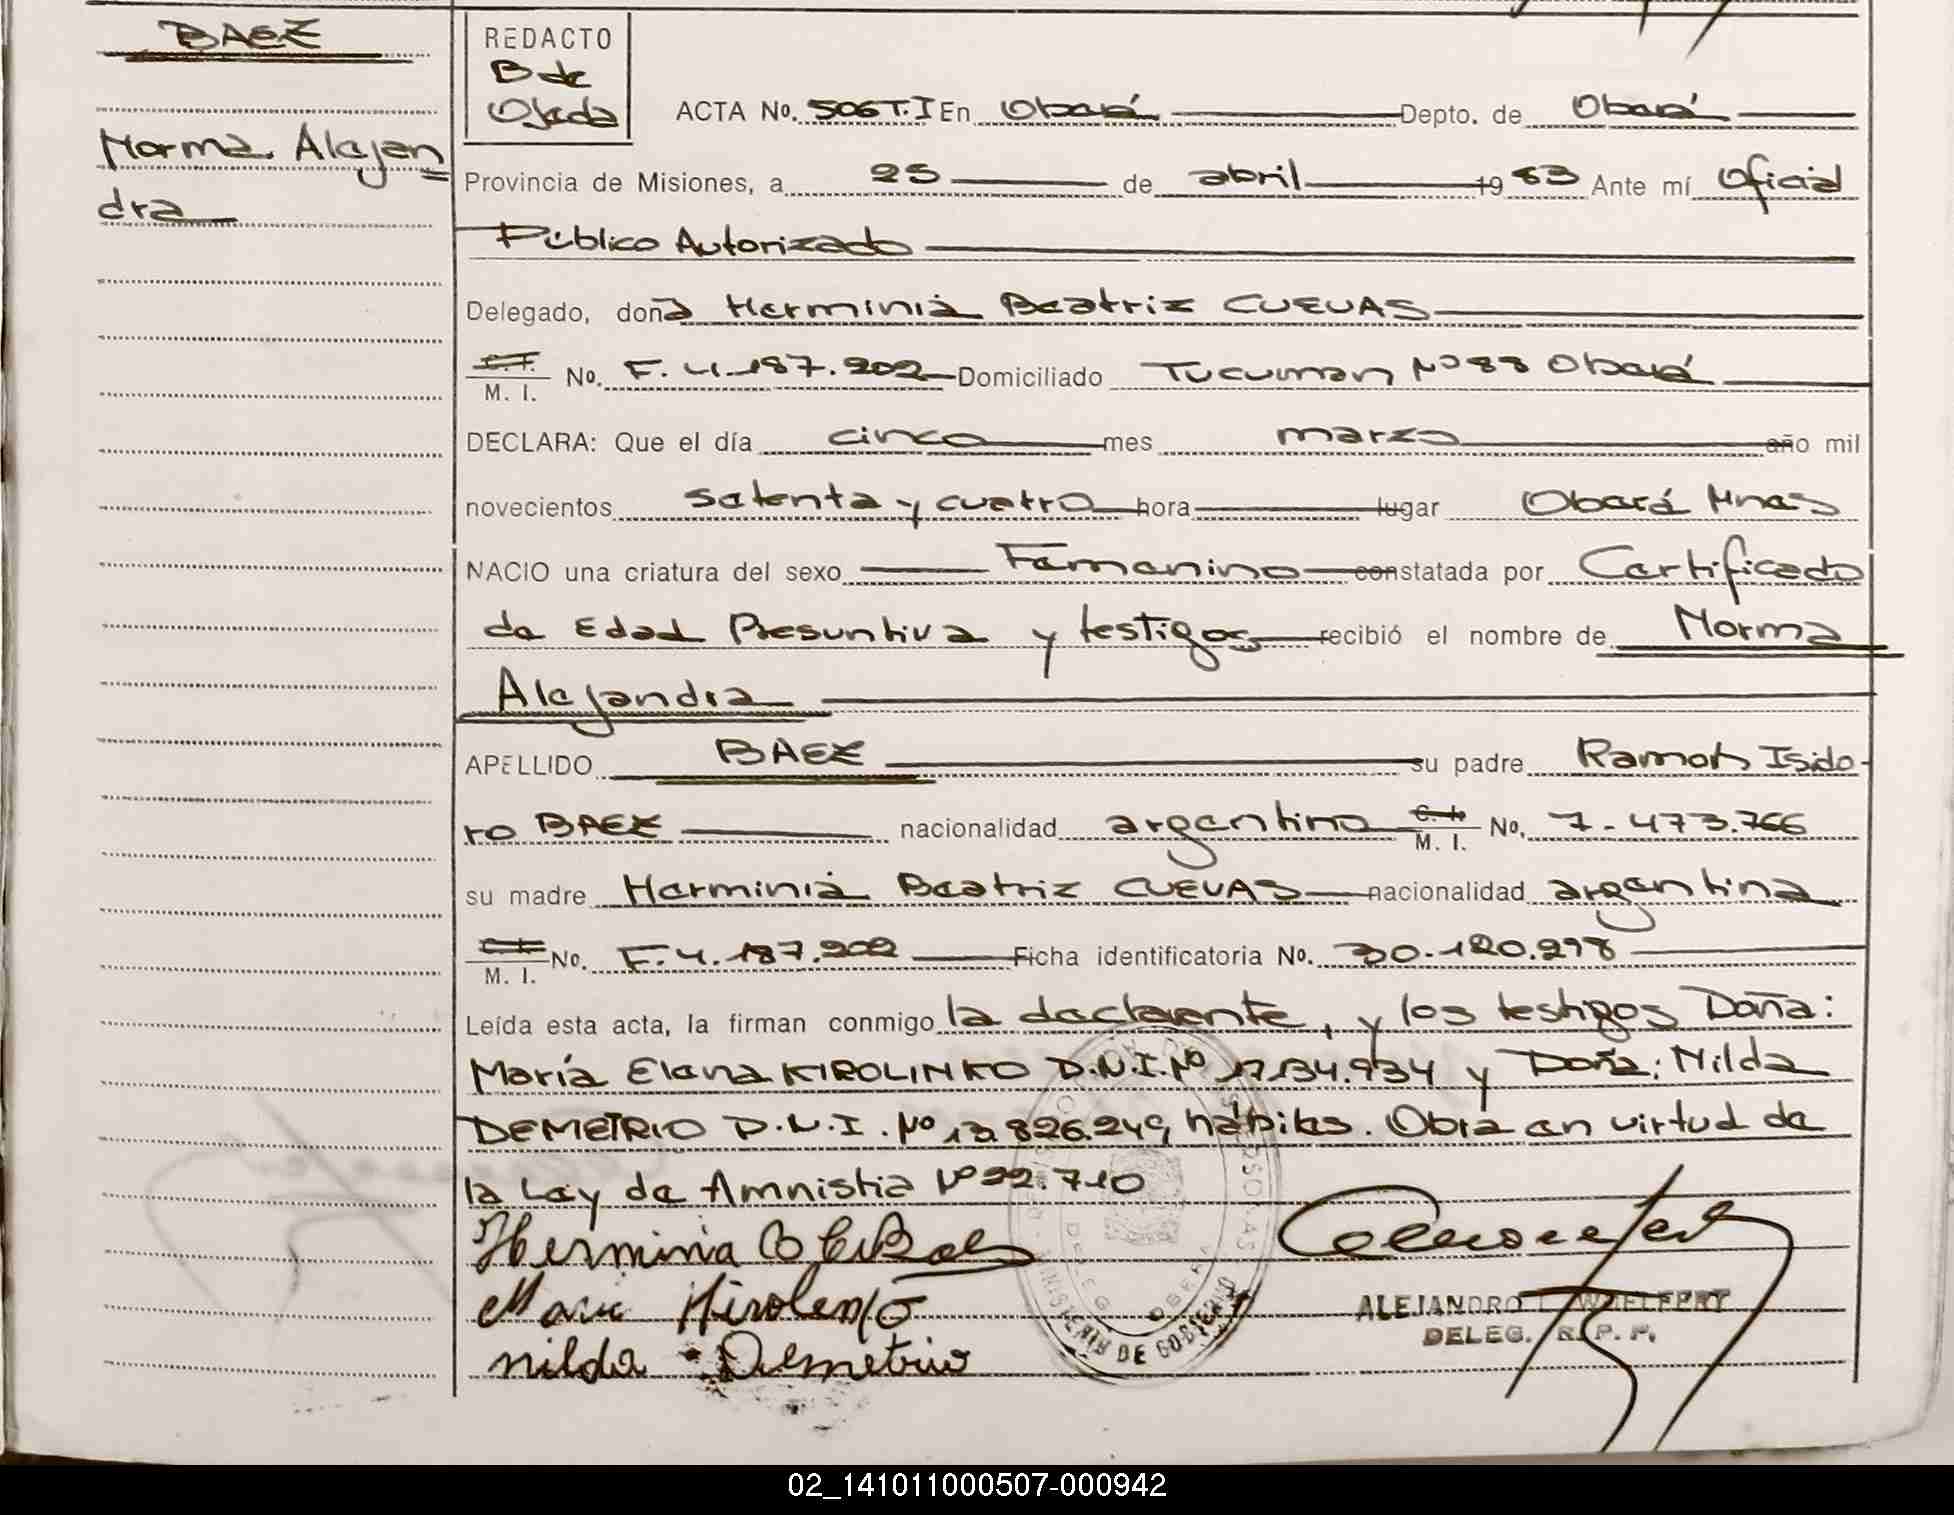 BAEZ
Norma Alejan=
dra
REDACTO
B de
Ojeda
ACTA No. 506 T.I En Oberá Depto. de Oberá
Provincia de Misiones, a 25 de abril 1983 Ante mí Oficial
Público Autorizado
Delegado, doña Herminia Beatriz CUEVAS
C. I. M. I. No. F. 4.187.202 Domiciliado Tucuman Nº 88 Oberá
DECLARA: Que el día cinco mes marzo año mil
novecientos setenta y cuatro hora lugar Oberá Mnes
NACIO una criatura del sexo Femenino constatada por Certificado
de Edad Presuntiva y testigos recibió el nombre de Norma
Alejandra
APELLIDO BAEZ su padre Ramon Isido-
ro BAEZ nacionalidad argentino C. I. M. I. No. 7.473.766
su madre Herminia Beatriz CUEVAS nacionalidad argentina
C. I. M. I. No. F. 4.187.202 Ficha identificatoria No. 30.120.298
Leída esta acta, la firman conmigo la declarente, y los testigos Doña:
María Elena KIROLINKO D.N.I. Nº 17.134.934 y Doña: Nilda
DEMETRIO D.N.I. Nº 12.826.249 hábiles. Obra en virtud de
la Ley de Amnistia Nº 22.710
Herminia B C de Baez
Maria Kirolenko
nilda Demetrio
ALEJANDRO
DELEG. R. P. P.
MINISTERIO DE GOBIERNO
DELEG OBERA
02_141011000507-000942